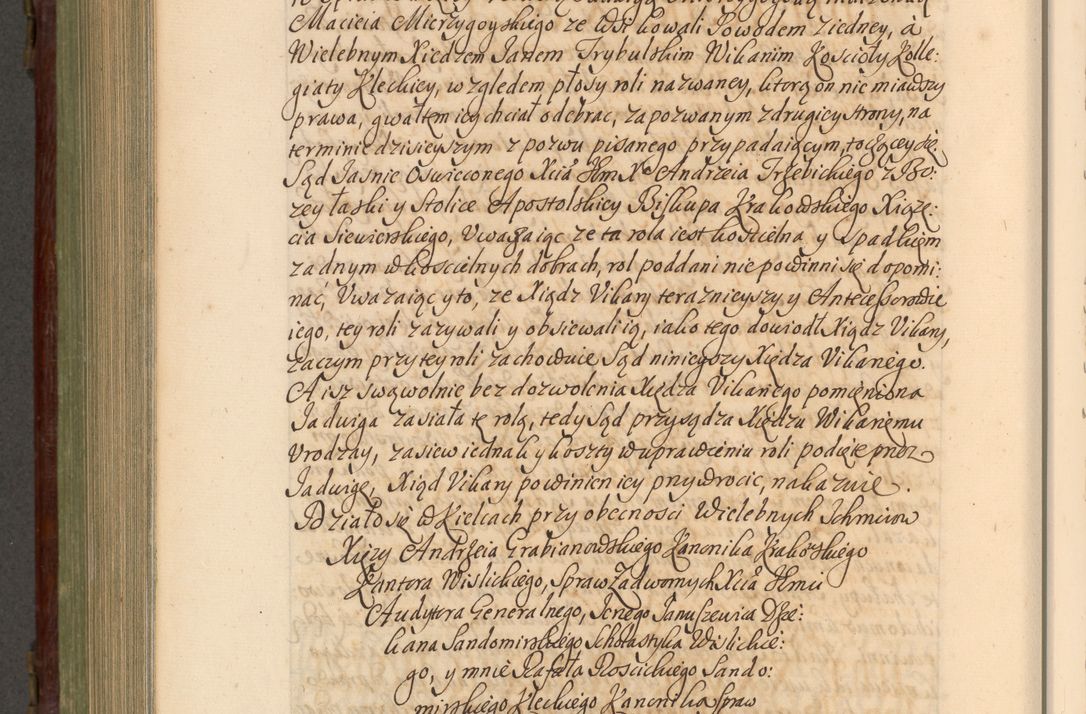 Macieia Mierzygoyskiego ze Wsi kowali Powodem ziedney, á
Wielebnym Xiedzem Janem Trybulskim Wikarim Kościoły Kolle:
giaty Kleckiey, względem płosy roli nazwaney, ktorą on nie miawszy
prawa, gwałtem iey chciał odebrac, zapozwanym zdrugiey strony, na
terminie dzisieyszym z pozwu pisanego przypadaiącym, toczącey się
Sąd Jasnie Oswieconego Xcia Jłm Xa Andrzeia Trzebickiego z Bo:
zey łaski y Stolice Apostolskiey Biskupa Krakowskiego Xiąze:
cia Siewierskiego, Uwazaiąc ze ta rola iest koscielna y spadkiem
zadnym w koscielnych dobrach, rol poddani nie powinni się dopomi:
nać, Uwazaiąc y to, ze Xiądz Vikary teraznieyszy y Antecessorowie
iego, tey roli zazywali y obsiewali ią, iako tego dowiodł Xiądz Vikary,
zaczym przy tey roli zachowuie Sąd ninieyszy Xiędza Vikarego.
A isz swawolnie bez dozwolenia Xiędza Vikarego pomieniona
Jadwiga zasiała tę rolą, tedy Sąd przysądza Xiędzu Wikariemu
Urodzay, zasiew iednak y koszty w uprawieniu roli podięte przez
Jadwigę, Xiąd Vikary powinien iey przywrocic, nakazuie.
Działo się w Kielcach przy obecnosci Wielebnych Jchmciow
Xięzy Andrzeia Grabianowskiego Kanonika Krakowskiego
Kantora Wislickiego, Spraw Zadwornych Xcia Jłmci
Audytora Generalnego, Jerzego Januszewica Dzie:
kana Sandomirskiego Scholastyka Wislickie:
go, y mnie Rafała Roscickiego Sando:
mirskiego Kleckiego Kanonika Spraw